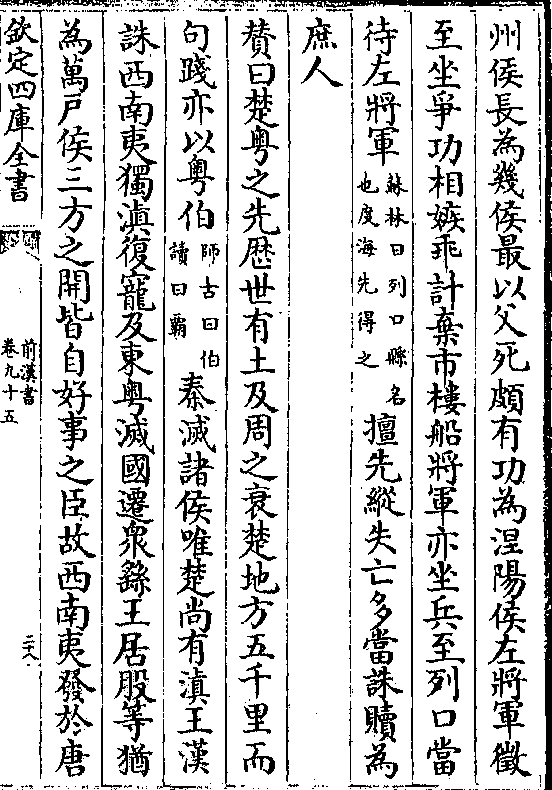 州侯長為幾侯最以父死頗有功為涅陽侯左將軍徵
至坐爭功相嫉乖計棄市樓船將軍亦坐兵至列口當
待左將軍蘇林曰列口縣名也度海先得之擅先縱失亡多當誅贖為
庶人
賛曰楚粤之先歴世有土及周之衰楚地方五千里而
句踐亦以粤伯師古曰伯讀曰霸秦滅諸侯唯楚尚有滇王漢
誅西南夷獨滇復寵及東粤滅國遷衆繇王居股等猶
為萬戶侯三方之開皆自好事之臣故西南夷發於唐
欽定四庫全書
前漢書
卷九十五
二十八